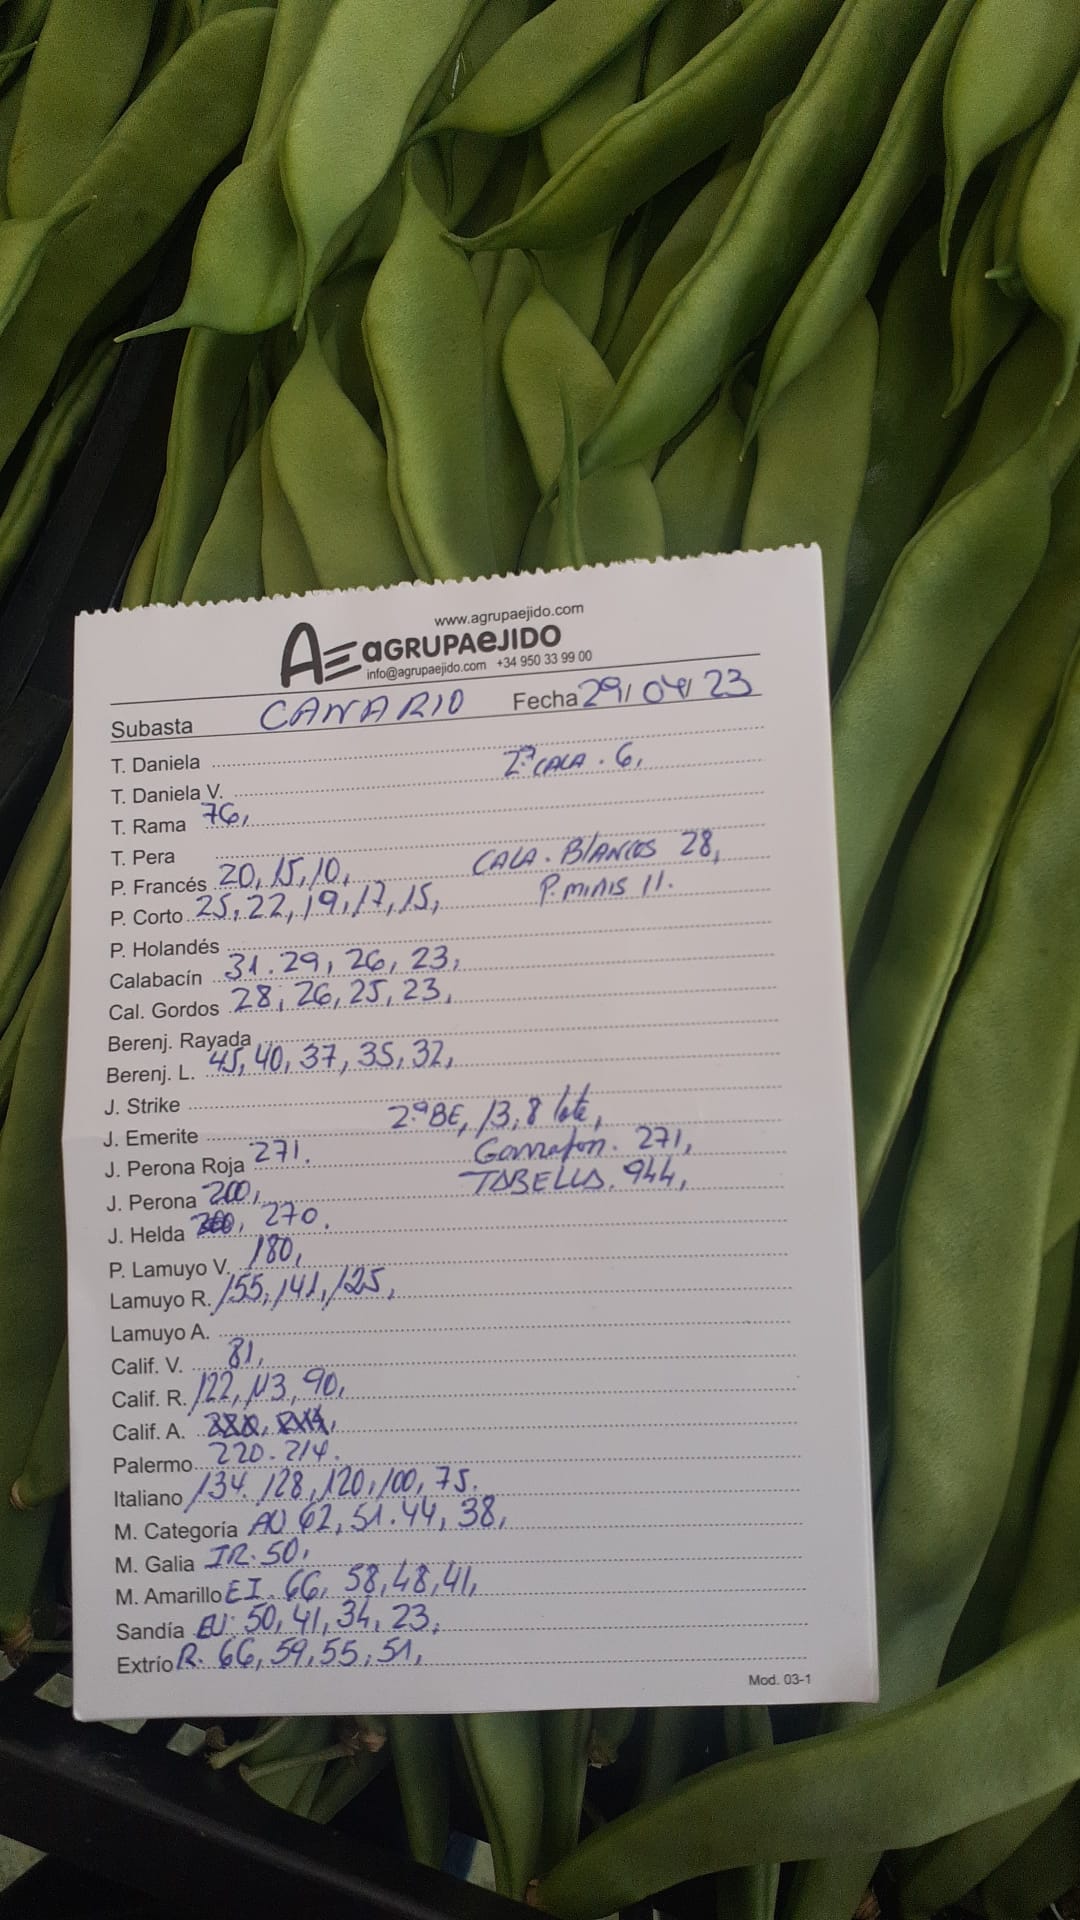 www.agrupaejido.com
AE aGRUPAeJIDO
info@agrupaejido.com +34 950 33 99 00
Subasta CANARIO Fecha 29/04/23
T. Daniela
2ª CALA. 6,
T. Daniela V.
T. Rama 76,
T. Pera
CALA. BlANCOS 28,
P. Francés 20, 15, 10,
P. minis 11.
P. Corto 25, 22, 19, 17, 15,
P. Holandés
Calabacín 31. 29, 26, 23,
Cal. Gordos 28, 26, 25, 23,
Berenj. Rayada
Berenj. L. 45, 40, 37, 35, 32,
J. Strike
2ª BE, 13, 8 lote,
J. Emerite
Garrafon. 271,
J. Perona Roja 271.
TABELLA. 944,
J. Perona 200,
J. Helda 270.
P. Lamuyo V. 180,
Lamuyo R. 155, 141, 125,
Lamuyo A.
Calif. V. 81,
Calif. R. 122, 113, 90,
Calif. A.
Palermo 220. 214.
Italiano 134. 128, 120, 100, 75.
M. Categoría AU 62, 51. 44, 38,
M. Galia IR. 50,
M. Amarillo EI. 66, 58, 48, 41,
Sandía EU: 50, 41, 34, 23,
Extrío R. 66, 59, 55, 51,
Mod. 03-1